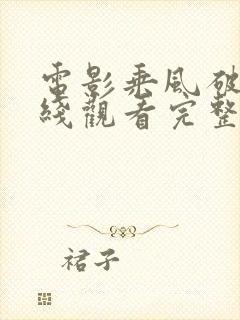 電影乘風破
綫觀看完整
裙子